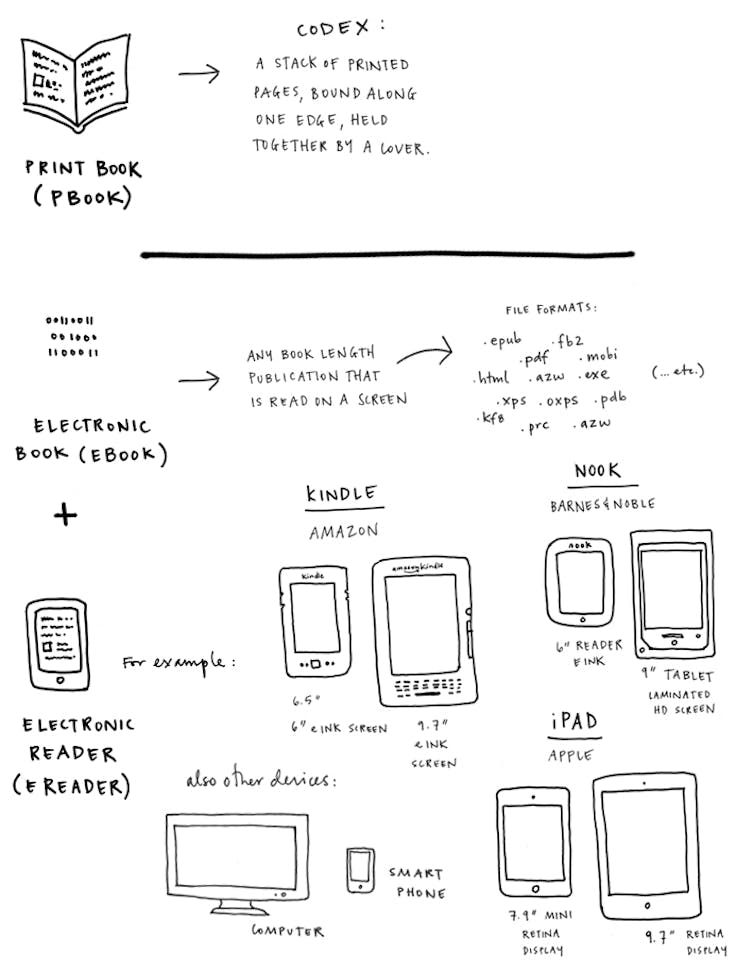 CODEX:
A STACK OF PRINTED
PAGES, BOUND ALONG
ONE EDGE, HELD
TOGETHER BY A COVER.
PRINT BOOK
(PBOOK)
00110011
001000
1100011
ELECTRONIC
BOOK (EBOOK)
ANY BOOK LENGTH
PUBLICATION THAT
IS READ ON A SCREEN
FILE FORMATS:
.epub .fb2
.pdf .mobi
.html .azw .exe
(...etc.)
.xps .oxps .pdb
.kf8 .prc .azw
+
ELECTRONIC
READER
(EREADER)
For example:
KINDLE
AMAZON
kindle
amazonkindle
6.5"
6" eINK SCREEN
9.7"
eINK
SCREEN
NOOK
BARNES&NOBLE
nook
6" READER
EINK
9" TABLET
LAMINATED
HD SCREEN
iPAD
APPLE
7.9" MINI
RETINA
DISPLAY
9.7" RETINA
DISPLAY
also other devices:
COMPUTER
SMART
PHONE